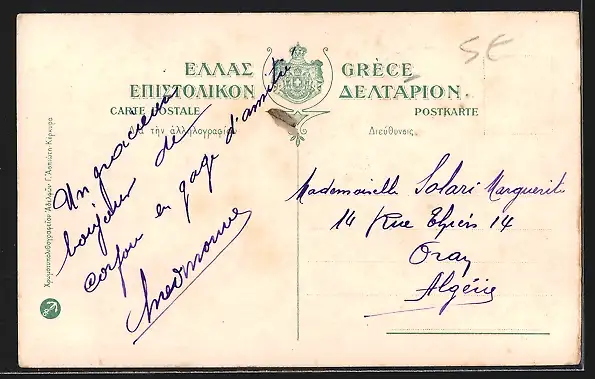 5E
ΕΛΛΑΣ GRÈCE
ΕΠΙΣΤΟΛΙΚΟΝ ΔΕΛΤΑΡΙΟΝ.
CARTE POSTALE POSTKARTE
Διὰ τὴν ἀλληλογραφίαν Διεύθυνσις.
Un gracieux
bonjour de
Corfou en gage d'amitié
Mademoiselle Solari Marguerite
14 Rue Thiers 14
Oran
Algérie
Χρωμοτυπολιθογραφεῖον Ἀδελφῶν Γ. Ἀσπιώτη Κέρκυρα